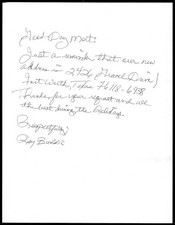 Good Day Matt:
Just a reminder that our new
address is 2426 Grand Drive
Fort Worth, Texas 76118-6938
Thanks for your request and all
the best during the holidays.
Respectfully;
Ray